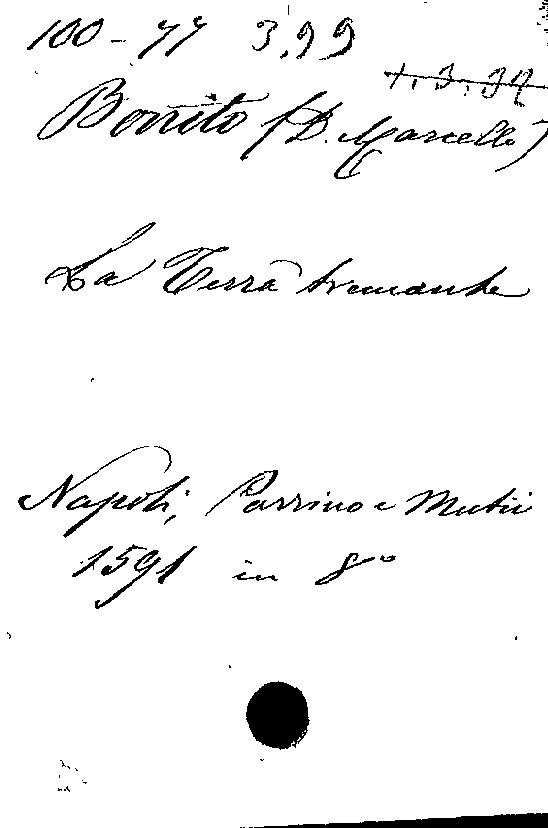 100-77 3,99
1.3.37
Bonito (D. Marcello)
La Terra tremante
Napoli, Parrino e Mutii
1591 in 8º